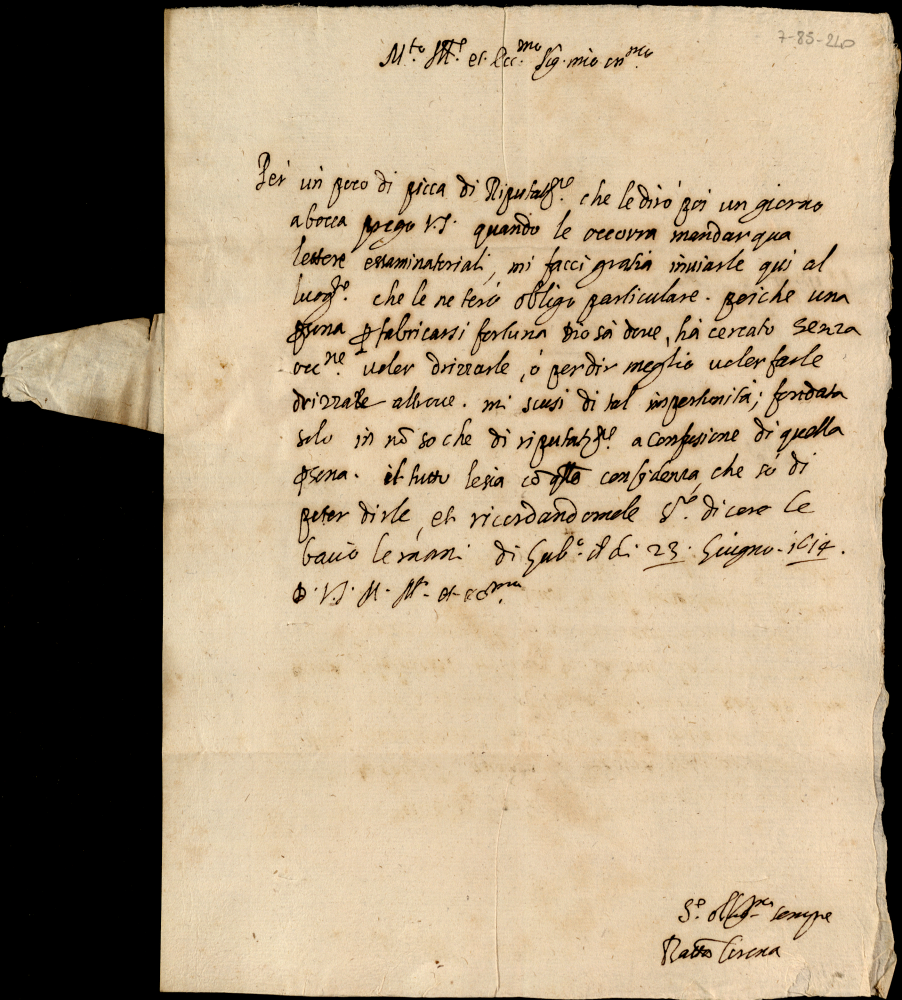 7-85-240
M.to Ill.e et Ecc.mo Sig. mio
Per un poco di picca di Riputat.ne che le dirò poi un giorno
a bocca prego V.S. quando le occorra mandar qua
lettere essaminatoriali, mi facci gratia inviarle qui al
che le ne terò obligo particulare. poiche una
psona p fabricarsi fortuna Dio sà dove, hà cercato senza
occ.ne voler drizzarle, ó per dir meglio voler farle
drizzare altrove. mi scusi di tal impertinità; fondata
solo in nō so che di riputat.ne a confusione di quella
psona. il tutto le sia cō qlla confidenza, che sò di
poter dirle, et ricordandomele S.re di core le
bacio le mani di Gub.o il dì 23. Giugno. 1614.
D. V.S. M. Ill.e et ecc.ma
S.re sempre